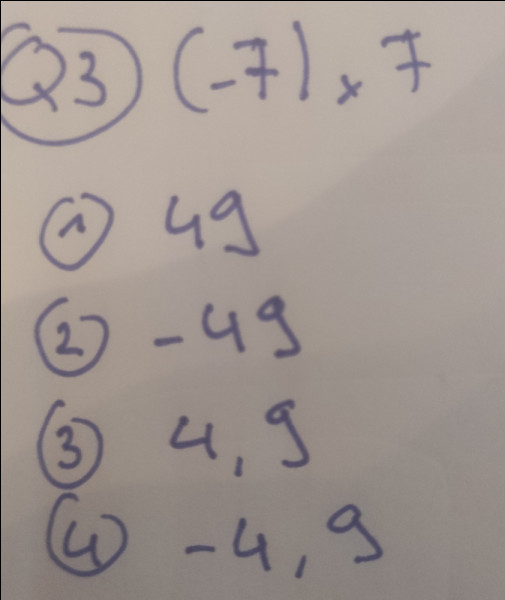 Q3 (-7) x 7
1 49
2 -49
3 4,9
4 -4,9